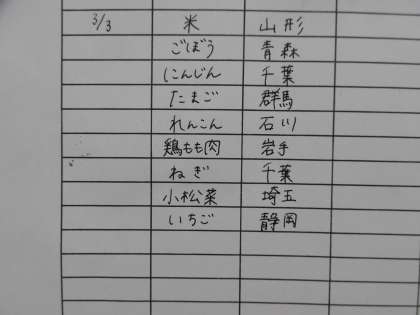 3/3 米 山形
ごぼう 青森
にんじん 千葉
たまご 群馬
れんこん 石川
鶏もも肉 岩手
ねぎ 千葉
小松菜 埼玉
いちご 静岡